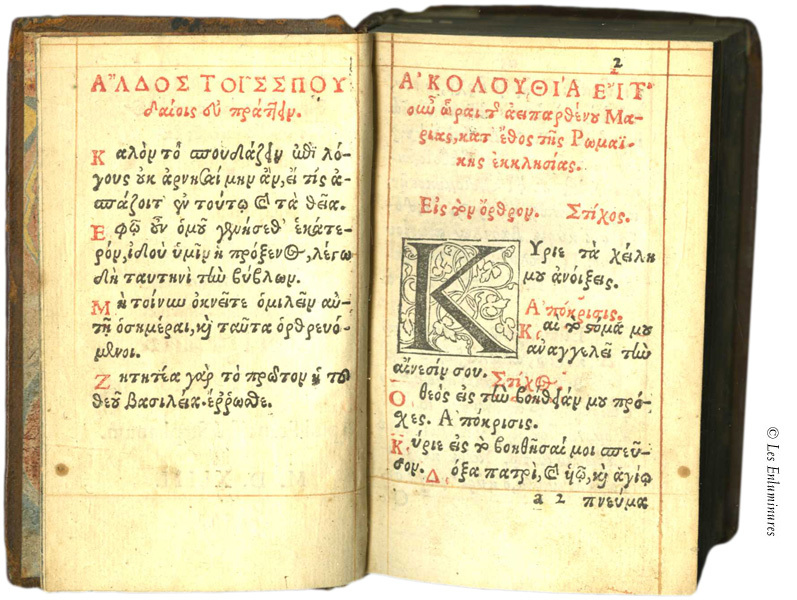 ΑʼΛΔΟΣ ΤΟΙΣ ΣΠΟΥ
δαίοις εὖ πράτ]ειν.
Καλὸν τὸ σπουδάζειν ἐπὶ λό-
γους οὐκ ἀρνησαίμην ἂν, εἴ τίς ἀ-
σπάζοιτ' ἐν τούτῳ καὶ τὰ θεῖα.
Εφ' ᾧ οὖν ὁμοῦ γενήσεσθ' ἑκάτε-
ρόν, ἰδοὺ ὑμῖν ἡ πρόξενος, λέγω
δὴ ταυτηνὶ τὴν βύβλον.
Μὴ τοίνυν ὀκνεῖτε ὁμιλεῖν αὐ-
τῇ ὁσημέραι, καὶ ταῦτα ὀρθρευό-
μενοι.
Ζητητέα γὰρ τὸ πρῶτον ἡ τοῦ
θεοῦ βασιλεία. ἔρρωσθε.
2
ΑʼΚΟΛΟΥΘΙΑ ΕΙΣ
τὰς ὥρας τῆς ἀειπαρθένου Μα-
ρίας, κατ' ἔθος τῆς Ρωμαϊ-
κῆς ἐκκλησίας.
Εἰς τὸν ὄρθρον. Στίχος.
Κύριε τὰ χείλη
μου ἀνοίξεις.
Αʼπόκρισις.
Καὶ τὸ στόμα μου
ἀναγγελεῖ τὴν
αἴνεσίν σου. Στίχος
Ο θεὸς εἰς τὴν βοήθειάν μου πρό-
χες. Αʼπόκρισις.
Κύριε εἰς τὸ βοηθῆσαί μοι σπεῦ-
σον. Δόξα πατρὶ, καὶ υἱῷ, καὶ ἁγίῳ
a 2 πνεύμα
© Les Enluminures